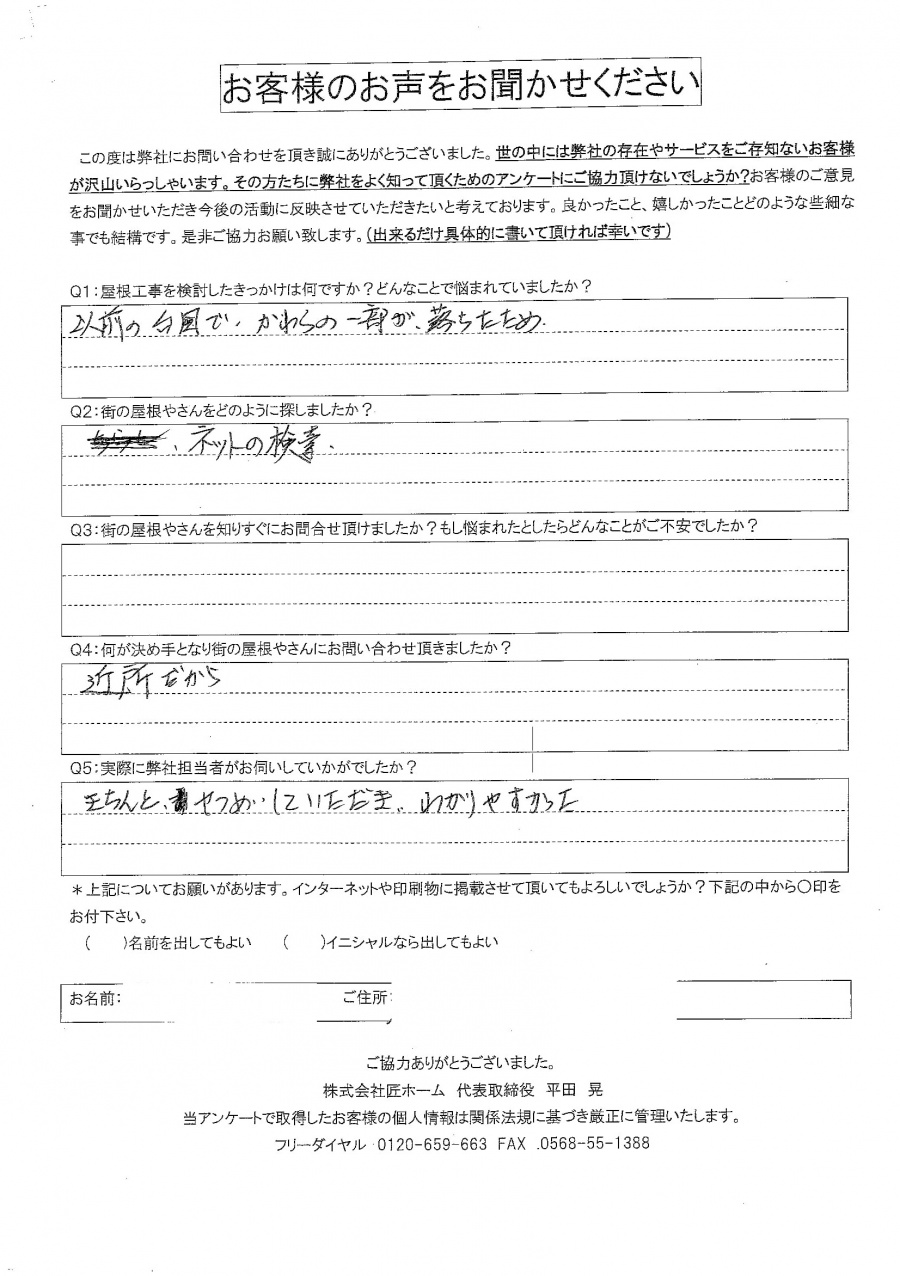 お客様のお声をお聞かせください
この度は弊社にお問い合わせを頂き誠にありがとうございました。世の中には弊社の存在やサービスをご存知ないお客様
が沢山いらっしゃいます。その方たちに弊社をよく知って頂くためのアンケートにご協力頂けないでしょうか?お客様のご意見
をお聞かせいただき今後の活動に反映させていただきたいと考えております。良かったこと、嬉しかったことどのような些細な
事でも結構です。是非ご協力お願い致します。(出来るだけ具体的に書いて頂ければ幸いです)
Q1:屋根工事を検討したきっかけは何ですか?どんなことで悩まれていましたか?
以前の台風で、かわらの一部が、落ちたため.
Q2:街の屋根やさんをどのように探しましたか?
、ネットの検索.
Q3:街の屋根やさんを知りすぐにお問合せ頂けましたか?もし悩まれたとしたらどんなことがご不安でしたか?
Q4:何が決め手となり街の屋根やさんにお問い合わせ頂きましたか?
近所だから
Q5:実際に弊社担当者がお伺いしていかがでしたか?
きちんと、せつめいしていただき、わかりやすかった
*上記についてお願いがあります。インターネットや印刷物に掲載させて頂いてもよろしいでしょうか?下記の中から〇印を
お付下さい。
( )名前を出してもよい ( )イニシャルなら出してもよい
お名前: ご住所:
ご協力ありがとうございました。
株式会社匠ホーム 代表取締役 平田 晃
当アンケートで取得したお客様の個人情報は関係法規に基づき厳正に管理いたします。
フリーダイヤル 0120-659-663 FAX .0568-55-1388